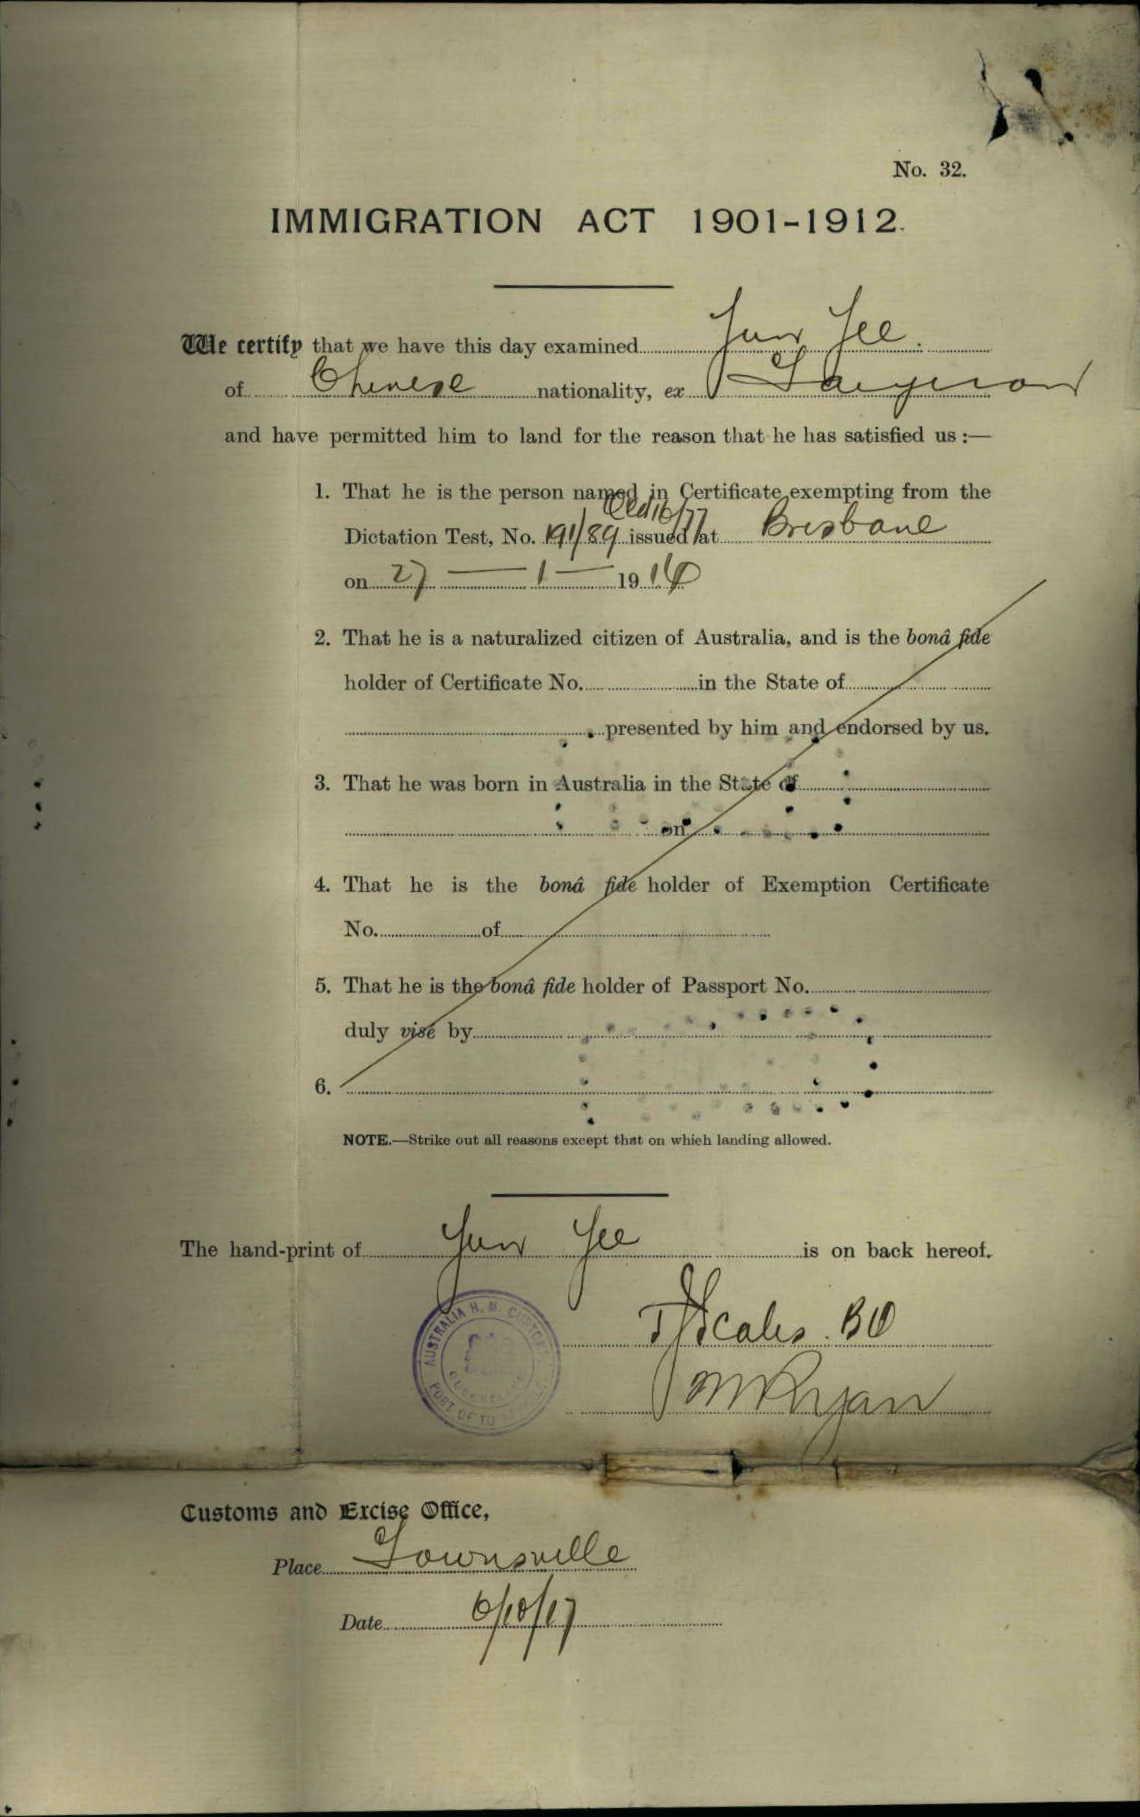 No. 32.
IMMIGRATION ACT 1901-1912.
We certify that we have this day examined Yee.
of Chinese nationality, ex Taiyuan
and have permitted him to land for the reason that he has satisfied us :—
1. That he is the person named in Certificate exempting from the
Dictation Test, No. 191/89 issued at Brisbane
on 27 — 1 — 1916
2. That he is a naturalized citizen of Australia, and is the bonâ fide
holder of Certificate No. in the State of
presented by him and endorsed by us.
3. That he was born in Australia in the State of
on
4. That he is the bonâ fide holder of Exemption Certificate
No. of
5. That he is the bonâ fide holder of Passport No.
duly visé by
6.
NOTE.—Strike out all reasons except that on which landing allowed.
The hand-print of Yee is on back hereof.
AUSTRALIA H. M. CUSTOMS
PORT OF TO
Scales.
Ryan
Customs and Excise Office,
Place Townsville
Date 6/10/17